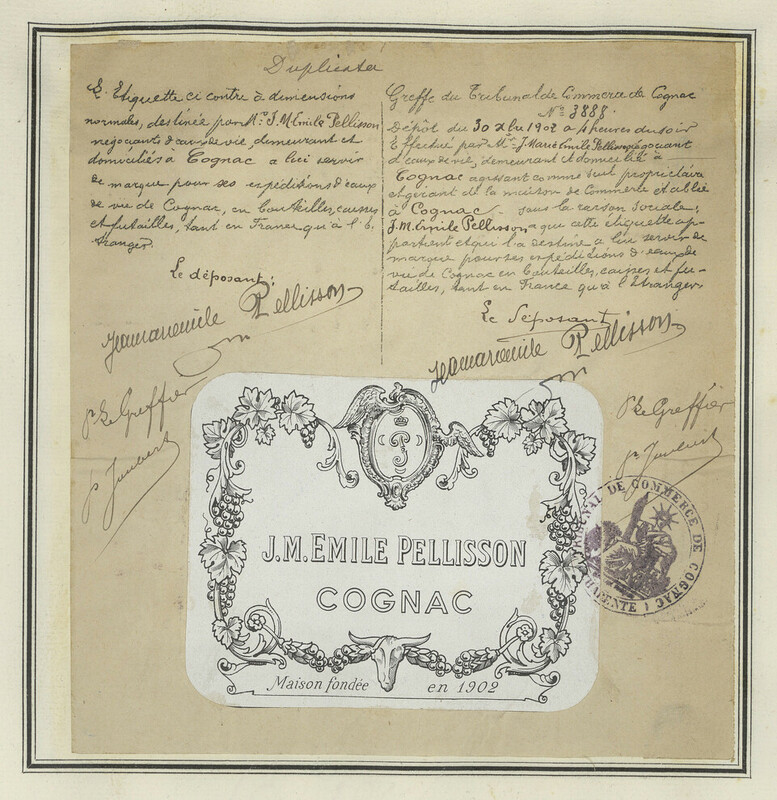 Duplicata
L'Etiquette ci contre à dimensions
normales, destinée par Mr. J. M. Emile Pellisson
négociant d'eaux de vie, demeurant et
domiciliés à Cognac a lui servir
de marque pour ses expéditions d'eaux
de vie de Cognac, en bouteilles, caisses
et futailles, tant en France qu'à l'é-
tranger.
Le déposant:
Jeanmariemile Pellisson
Pr Le Greffier
P Jaubert
Greffe du Tribunal de Commerce de Cognac
No 3888.
Dépôt du 30 Xbre 1902 à 4 heures du soir
Effectué par Mr. J. Marie Emile Pellisson négociant
d'eaux de vie, demeurant et domicilié à
Cognac agissant comme seul propriétaire
et gérant de la maison de Commerce établie
à Cognac sous la raison sociale:
J. M. Emile Pellisson a que cette étiquette ap-
partient et qui l'a destiné a leur servir de
marque pour ses expéditions d'eaux de
vie de Cognac en bouteilles, caisses et fu-
tailles, tant en France qu'à l'Etranger
Le Déposant
Jeanmariemile Pellisson
Pr Le Greffier
P Jaubert
J. M. EMILE PELLISSON
COGNAC
Maison fondée en 1902
TRIBUNAL DE COMMERCE DE COGNAC
CHARENTE